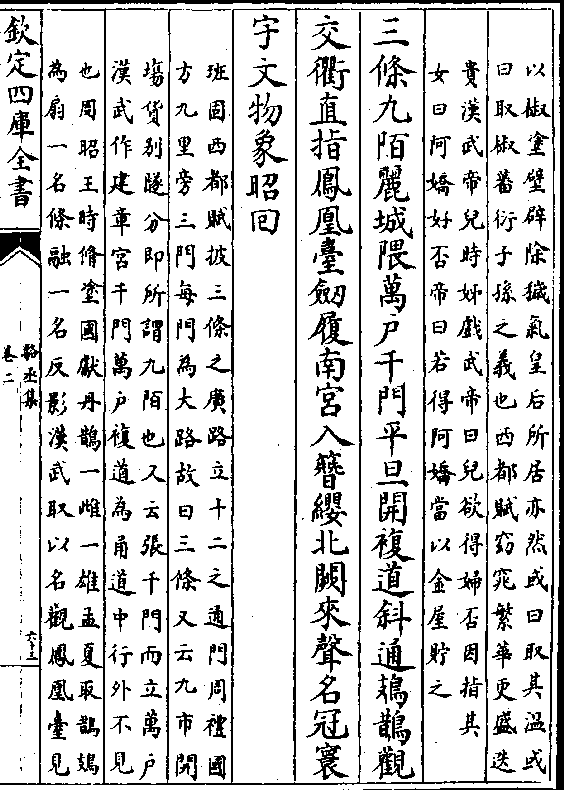 以椒塗壁辟除穢氣皇后所居亦然或曰取其温或
曰取椒蕃衍子孫之義也西都賦窈窕繁華更盛迭
貴漢武帝兒時姊戲武帝曰兒欲得婦否因指其
女曰阿嬌好否帝曰若得阿嬌當以金屋貯之
三條九陌麗城隈萬户千門平旦開複道斜通鳷鵲觀
交衢直指鳳凰臺劒履南宫入簪纓北闕來聲名冠寰
宇文物象昭回
班固西都賦披三條之廣路立十二之通門周禮國
方九里旁三門每門為大路故曰三條又云九市開
塲貨别隧分即所謂九陌也又云張千門而立萬户
漢武作建章宫千門萬户複道為甬道中行外不見
也周昭王時脩塗國獻丹鵲一雌一雄孟夏取鵲鳷
為扇一名條融一名反影漢武取以名觀鳳凰臺見
欽定四庫全書
駱丞集
卷二
六十三